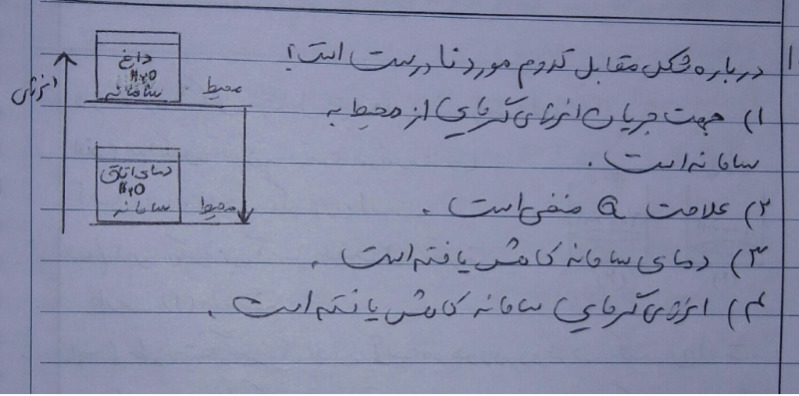 درباره شکل مقابل کدوم مورد نادرست است؟
۱) جهت جریان انرژی گرمایی از محیط به
سامانه است.
۲) علامت Q منفی است.
۳) دمای سامانه کاهش یافته است.
۴) انرژی گرمایی سامانه کاهش یافته است.
انرژی
داغ
H₂O
سامانه
محیط
دمای اتاق
H₂O
سامانه
محیط